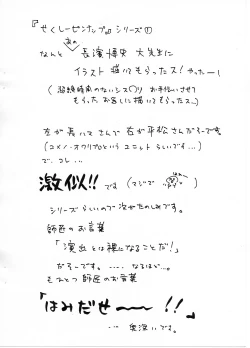 『せくしーピンナップ』シリーズ①
なんと あの 長濱博史 大先生に
イラスト 描いてもらったス! やったー!
もらったお返しに描いてもらったス…)
左が長いてさんで 右が平松さんだそーです
(コメノ・オクリプロという ユニット らしいです…)
で、コレ…
激似!! です (マジで
シリーズらしいので次がたのしみです。
師匠のお言葉
「演出とは裸になることだ!」
だそーです。…… なるほど…。
もひとつ 師匠のお言葉
「はみだせ〜〜!!」
…… 奥深いです。